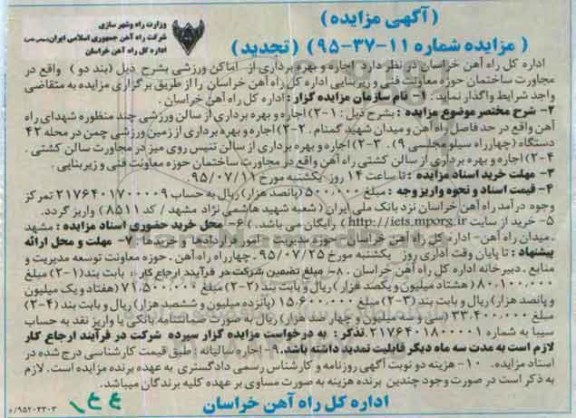 (آگهی مزایده)
وزارت راه وشهر سازی
شرکت راه آهن جمهوری اسلامی ایران
اداره کل راه آهن خراسان
(مزایده شماره ۱۱-۳۷-۹۵) (تجدید)
اداره کل راه آهن خراسان در نظر دارد اجاره و بهره برداری از اماکن ورزشی بشرح ذیل (بند دو) واقع در
مجاورت ساختمان حوزه معاونت فنی و زیربنایی اداره کل راه آهن خراسان را از طریق برگزاری مزایده به متقاضی
واجد شرایط واگذار نماید. ۱- نام سازمان مزایده گزار: اداره کل راه آهن خراسان.
۲- شرح مختصر موضوع مزایده: بشرح ذیل: ۱-۲) اجاره و بهره برداری از سالن ورزشی چند منظوره شهدای راه
آهن واقع در حد فاصل راه آهن و میدان شهید گمنام. ۲-۲) اجاره و بهره برداری از زمین ورزشی چمن در محله ۴۲
دستگاه (چهارراه سیلو مجلسی ۹). ۳-۲) اجاره و بهره برداری از سالن تنیس روی میز در مجاورت سالن کشتی.
۴-۲) اجاره و بهره برداری از سالن کشتی راه آهن واقع در مجاورت ساختمان حوزه معاونت فنی و زیربنایی.
۳- مهلت خرید اسناد مزایده: تا ساعت ۱۴ روز یکشنبه مورخ ۹۵/۰۷/۱۱
۴- قیمت اسناد و نحوه واریز وجه: مبلغ ۵۰۰.۰۰۰ (پانصد هزار) ریال به حساب ۲۱۷۶۴۰۱۷۰۰۰۰۹ تمرکز
وجوه درآمد راه آهن خراسان نزد بانک ملی ایران (شعبه شهید هاشمی نژاد مشهد / کد ۸۵۱۱) واریز گردد.
۵- خرید از سایت (http://iets.mporg.ir رایگان می باشد.) ۶- محل خرید حضوری اسناد مزایده: مشهد
. میدان راه آهن- اداره کل راه آهن خراسان. حوزه مدیریت امور قراردادها و خریدها. ۷- مهلت و محل ارائه
پیشنهاد: تا پایان وقت اداری روز یکشنبه مورخ ۹۵/۰۷/۲۵. چهارراه راه آهن. حوزه معاونت توسعه مدیریت و
منابع. دبیرخانه اداره کل راه آهن خراسان. ۸- مبلغ تضمین شرکت در فرآیند ارجاع کار: بابت بند (۱-۲) مبلغ
۸۰.۱۰۰.۰۰۰ (هشتاد میلیون و یکصد هزار) ریال و بابت بند (۲-۲) مبلغ ۷۱.۵۰۰.۰۰۰ (هفتاد و یک میلیون
و پانصد هزار) ریال و بابت بند (۳-۲) مبلغ ۱۵.۶۰۰.۰۰۰ (پانزده میلیون و ششصد هزار) ریال و بابت بند (۴-۲)
مبلغ ۳۳.۴۰۰.۰۰۰ (سی و سه میلیون و چهارصد هزار) ریال به صورت ضمانتنامه بانکی یا واریز نقد به حساب
سیبا به شماره ۲۱۷۶۴۰۱۸۰۰۰۰۱. تذکر: به درخواست مزایده گزار سپرده شرکت در فرآیند ارجاع کار
لازم است به مدت سه ماه دیگر قابلیت تمدید داشته باشد. ۹- اجاره سالیانه طبق قیمت کارشناسی درج شده در
اسناد مزایده. ۱۰- هزینه دو نوبت آگهی روزنامه و کارشناس رسمی دادگستری به عهده برنده مزایده است. لازم
به ذکر است در صورت وجود چندین برنده هزینه به صورت مساوی بر عهده کلیه برندگان میباشد.
اداره کل راه آهن خراسان